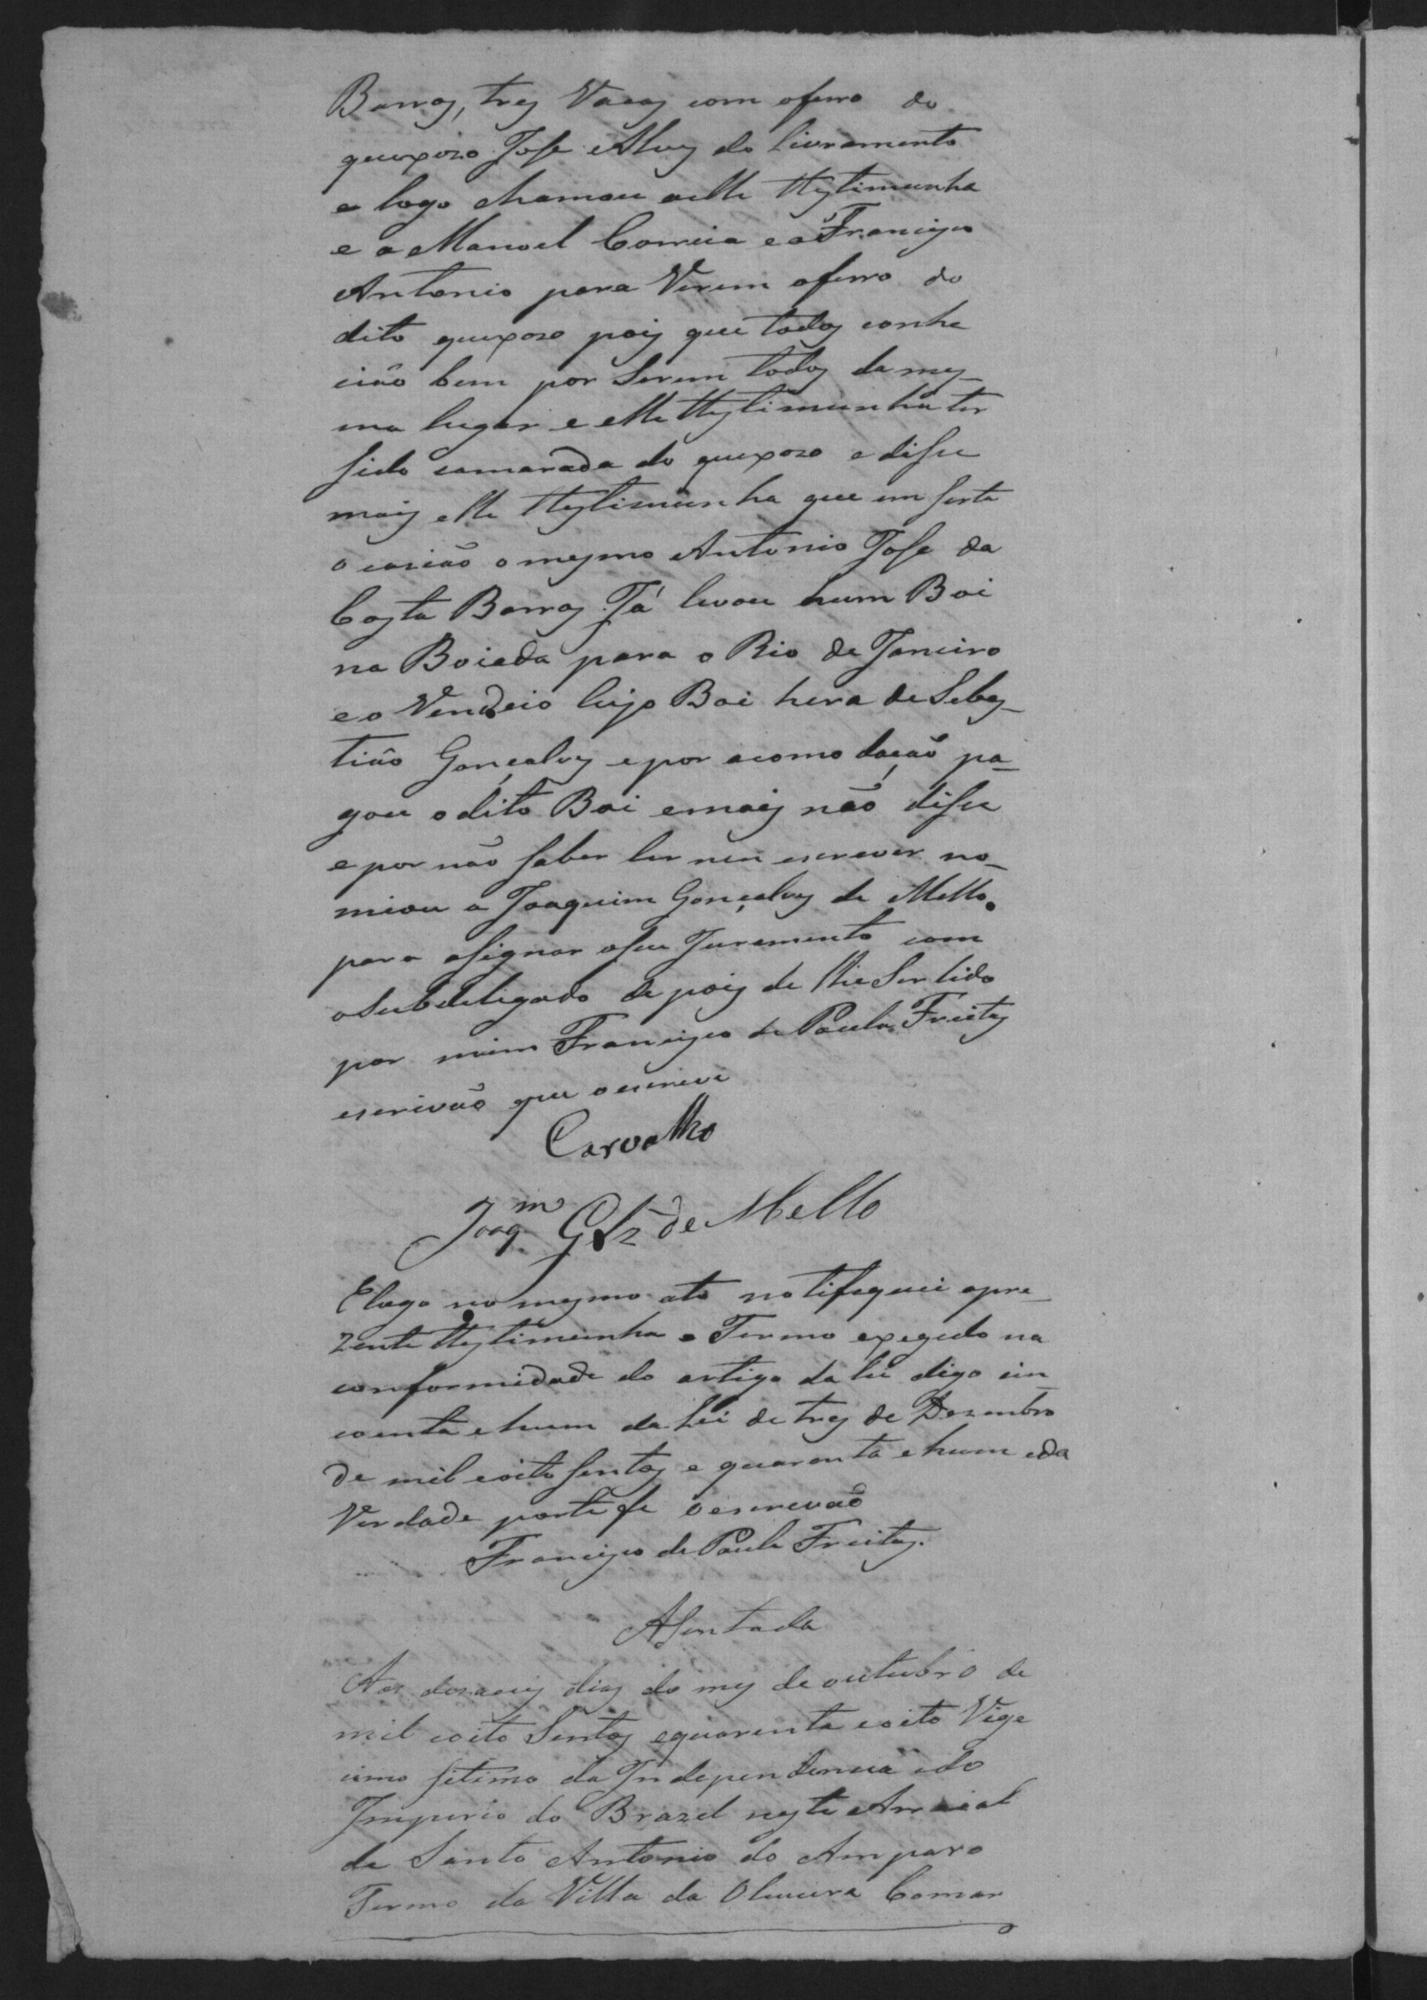 Barros, tres Vacas com oferro do
queixozo Jose Alves do livramento
e logo chamou aelle testimunha
e a Manoel Correia e a Francisco
Antonio para Verem oferro do
dito queixozo pois que todos conhe
cião bem por Serem todos da mes-
ma lugar e elle testimunha ter
sido camarada do queixozo e disse
mais elle testimunha que em serta
ocasião o mesmo Antonio Jose da
Costa Barros Já levou hum Boi
na Boiada para o Rio de Janeiro
e o Vendeio Cujo Boi hera de Sebas-
tião Gonçalves e por acomodação pa-
gou odito Boi emais não disse
e por não saber ler nem escrever no-
miou a Joaquim Gonçalves de Mello
para asignar oseu Juramento com
osubdeligado de pois de lhe Ser lido
por mim Francisco de Paula Freitas
escrivão que oescrevi
Carvalho
Joaqm Glz de Mello
Elogo no mesmo ato notifiquei apre-
zente testimunha o Termo exegido na
conformidade do artigo da lei digo cin-
coenta ehum da Lei de tres de Dezembro
de mil eoito sentos e quarenta ehum eda
Verdade porto fe oescrevão
Francisco de Paula Freitas.
Asentada
Aos dias do mes de outubro de
mil eoito Sentos equarenta eoito Vige
cimo setimo da Independencia edo
Imperio do Brazil neste Arraial
de Santo Antonio do Amparo
Termo da Villa da Oliveira Comar